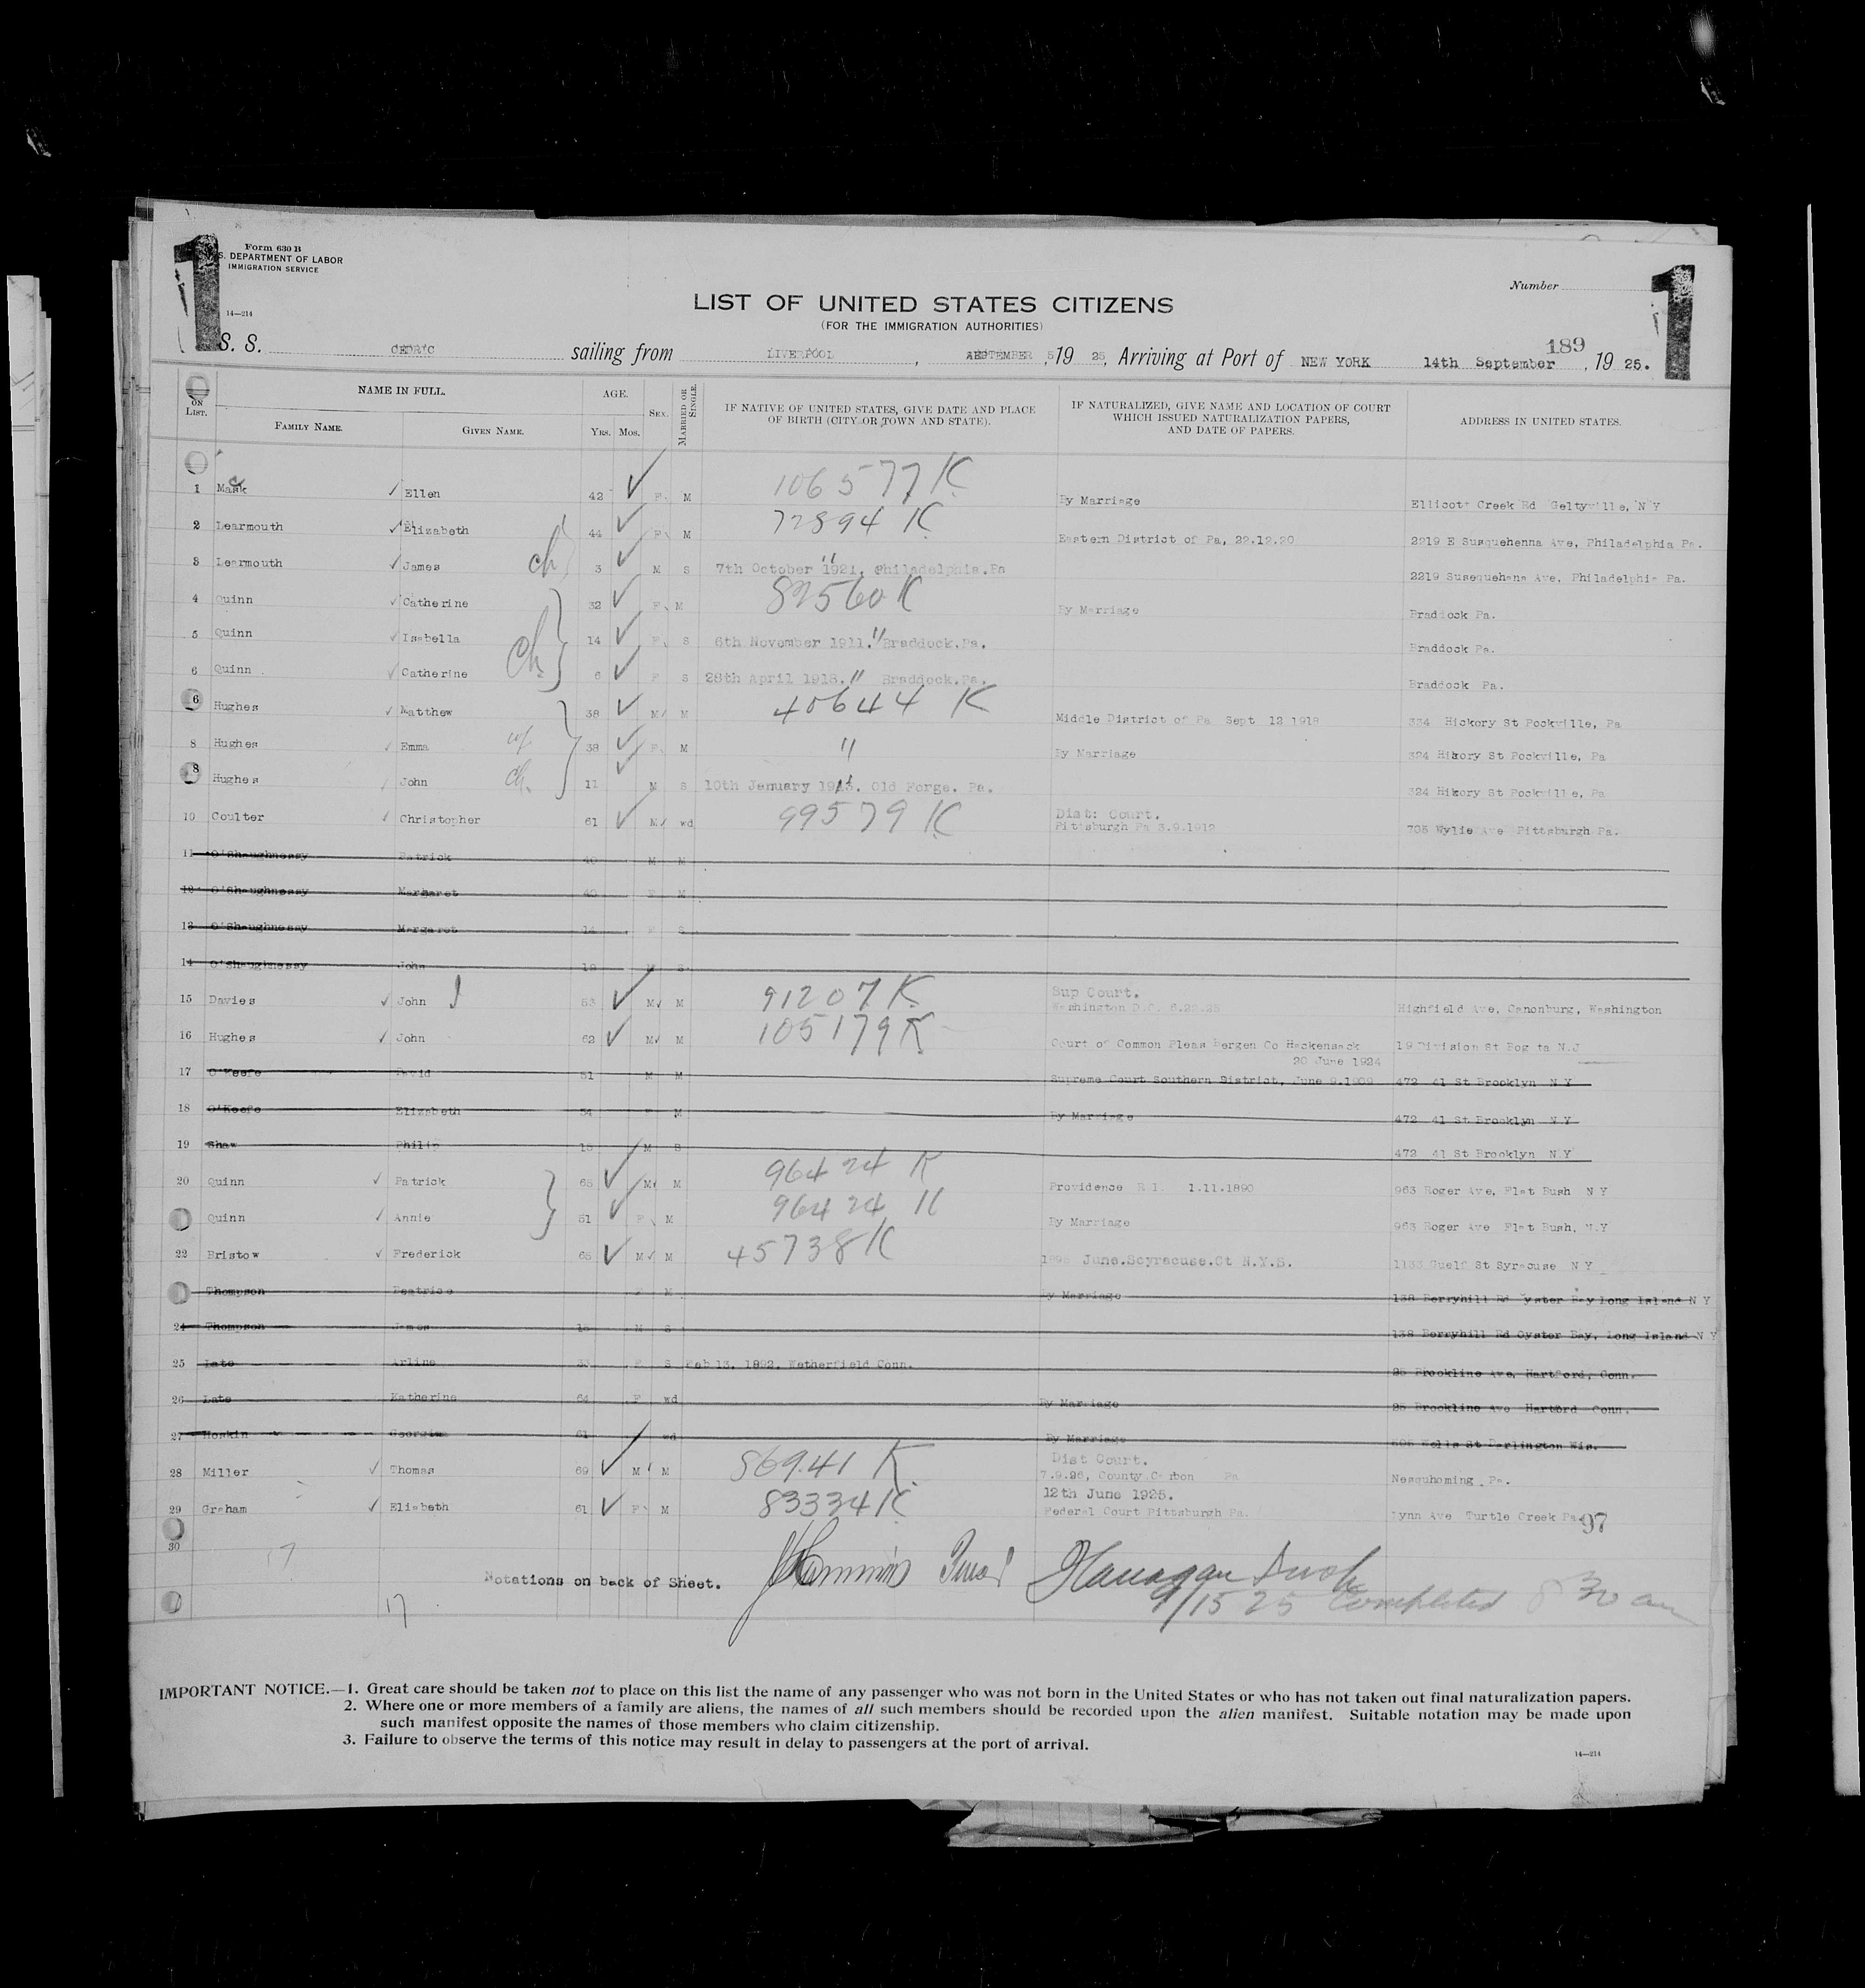 Form 630 B
S. DEPARTMENT OF LABOR
IMMIGRATION SERVICE
14—214
1
1
Number
LIST OF UNITED STATES CITIZENS
(FOR THE IMMIGRATION AUTHORITIES)
189
S. S. CEDRIC sailing from LIVERPOOL, SEPTEMBER 5, 19 25, Arriving at Port of NEW YORK 14th September, 19 25.
ON LIST.
NAME IN FULL.
FAMILY NAME.
GIVEN NAME.
AGE.
YRS. MOS.
SEX.
MARRIED OR SINGLE.
IF NATIVE OF UNITED STATES, GIVE DATE AND PLACE OF BIRTH (CITY OR TOWN AND STATE).
IF NATURALIZED, GIVE NAME AND LOCATION OF COURT WHICH ISSUED NATURALIZATION PAPERS, AND DATE OF PAPERS.
ADDRESS IN UNITED STATES.
1 Mack Ellen 42 F M 106577 K By Marriage Ellicott Creek Rd Geltyville, N Y
2 Learmouth Elizabeth 44 F M 72894 K Eastern District of Pa, 22.12.20 2219 E Susquehenna Ave, Philadelphia Pa.
3 Learmouth James ch 3 M S 7th October 1921. Philadelphia.Pa " 2219 Susequehana Ave, Philadelphia Pa.
4 Quinn Catherine 32 F M 82560 K By Marriage Braddock Pa.
5 Quinn Isabella 14 F S 6th November 1911. " Braddock.Pa. Braddock Pa.
6 Quinn Catherine ch 6 F S 28th April 1918. " Braddock.Pa. Braddock Pa.
6 Hughes Matthew 38 M M 40644 K Middle District of Pa Sept 12 1918 334 Hickory St Rockville, Pa
8 Hughes Emma wf 38 F M " By Marriage 324 Hikory St Rockville, Pa
8 Hughes John ch. 11 M S 10th January 1914. Old Forge. Pa. 324 Hikory St Rockville, Pa
10 Coulter Christopher 61 M wd 99579 K Dist: Court. Pittsburgh Pa 3.9.1912 705 Wylie Ave Pittsburgh Pa.
11 O'Shaughnessy Patrick 40 M M
12 O'Shaughnessy Margaret 40 F M
13 O'Shaughnessy Margaret 14 F S
14 O'Shaughnessy John 10 M S
15 Davies John 53 M M 91207 K Sup Court. Washington D.C. 6.22.25 Highfield Ave, Canonburg, Washington
16 Hughes John 62 M M 105179 K Court of Common Pleas Bergen Co Hackensack 19 Division St Bogota N.J
20 June 1924
17 O'Keefe David 51 M M Supreme Court Southern District, June 9.1909 472 41 St Brooklyn N Y
18 O'Keefe Elizabeth 54 F M By Marriage 472 41 St Brooklyn N Y
19 Shaw Philip 15 M S 472 41 St Brooklyn N.Y
20 Quinn Patrick 65 M M 96424 K Providence R I. 1.11.1890 963 Roger Ave, Flat Bush N Y
Quinn Annie 51 F M 96424 K By Marriage 963 Roger Ave Flat Bush, N.Y
22 Bristow Frederick 65 M M 45738 K June.Scyracuse.Ct N.Y.S. 1133 Guelf St Syracuse N Y
Thompson Beatrice F M By Marriage 138 Berryhill Rd Oyster Bay Long Island N Y
24 Thompson James M S 138 Berryhill Rd Oyster Bay, Long Island N Y
25 Late Arline 33 F S Feb 13, 1892, Wetherfield Conn. 25 Brookline Ave, Hartford, Conn.
26 Late Katherine 64 F wd By Marriage 25 Brookline Ave Hartford Conn.
27 Hoskin Georgina 61 wd By Marriage 505 Wells St Darlington Wis.
28 Miller Thomas 69 M M 86941 K Dist Court. 7.9.96, County Carbon Pa Nesquhoming, Pa.
29 Graham Elisbeth 61 F M 83334 K 12th June 1925. Federal Court Pittsburgh Pa. Lynn Ave Turtle Creek Pa.
97
30
17
Notations on back of Sheet.
9/15 25 Completed 8 30 am
17
IMPORTANT NOTICE.—1. Great care should be taken not to place on this list the name of any passenger who was not born in the United States or who has not taken out final naturalization papers.
2. Where one or more members of a family are aliens, the names of all such members should be recorded upon the alien manifest. Suitable notation may be made upon
such manifest opposite the names of those members who claim citizenship.
3. Failure to observe the terms of this notice may result in delay to passengers at the port of arrival.
14—214